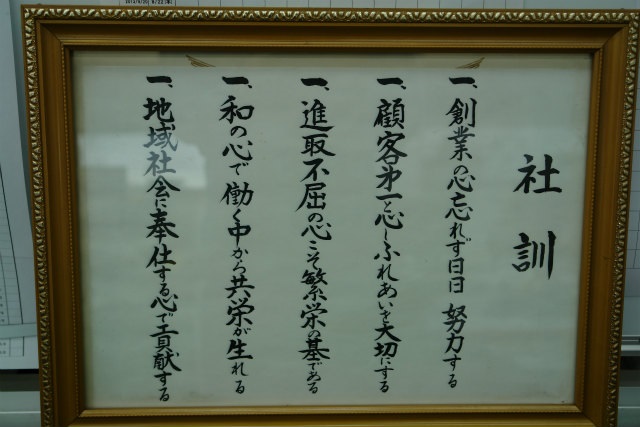 社訓
一、創業の心忘れず日日努力する
一、顧客第一と心しふれあいを大切にする
一、進取不屈の心こそ繁栄の基である
一、和の心で働く中から共栄が生れる
一、地域社会に奉仕する心で貢献する